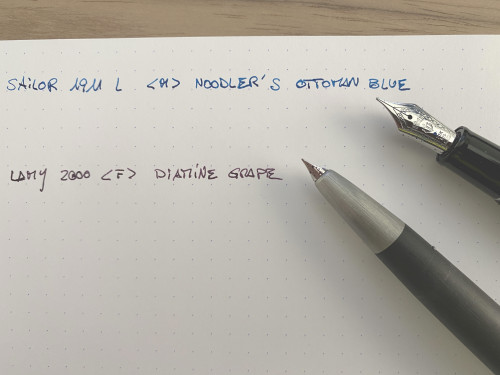 SAILOR 1911 L <M> NOODLER'S OTTOMAN BLUE
LAMY 2000 <F> DIAMINE GRAPE